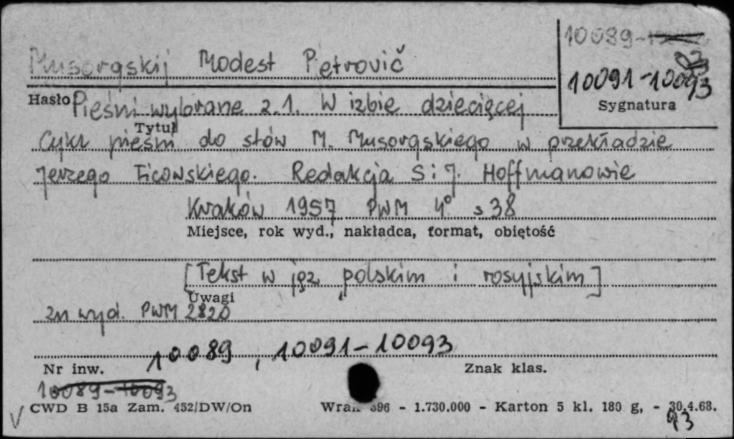 10089-
Musorgskij Modest Petrovič
10091-10093
Sygnatura
Hasło Pieśni wybrane z.1. W izbie dziecięcej
Tytuł
Cykl pieśni do słów M. Musorgskiego w przekładzie
Jerzego Ficowskiego. Redakcja S i J. Hoffmanowie
Kraków 1957 PWM 4° s 38
Miejsce, rok wyd., nakładca, format, objętość
[Tekst w jęz. polskim i rosyjskim]
Uwagi
zn wyd. PWM 2820
10089, 10091-10093
Nr inw. Znak klas.
10089-10093
CWD B 15a Zam. 452/DW/On 396 - 1.730.000 - Karton 5 kl. 180 g, - 30.4.68.
93